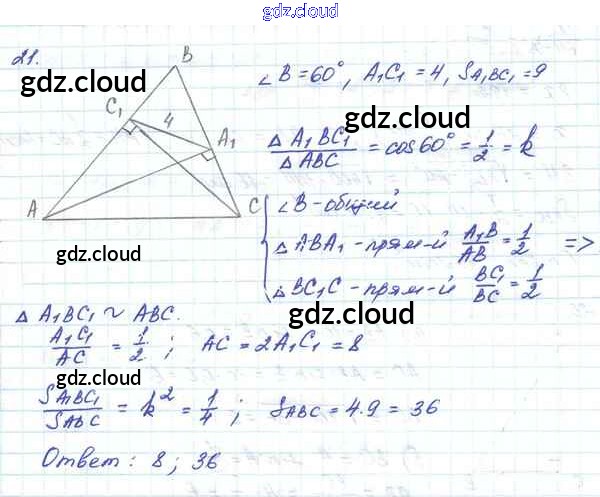 gdz.cloud
21.
gdz.cloud
B
C₁
4
A₁
A
C
gdz.cloud
∠B = 60°, A₁C₁ = 4, S A₁BC₁ = 9
gdz.cloud
△A₁BC₁/△ABC = cos 60° = 1/2 = k
∠B - общий
gdz.cloud
△ABA₁ - прям-й A₁B/AB = 1/2 =>
△BC₁C - прям-й BC₁/BC = 1/2
gdz.cloud
△A₁BC₁ ~ ABC.
A₁C₁/AC = 1/2; AC = 2A₁C₁ = 8
gdz.cloud
S A₁BC₁/S ABC = k² = 1/4; S ABC = 4·9 = 36
gdz.cloud
Ответ: 8; 36
gdz.cloud